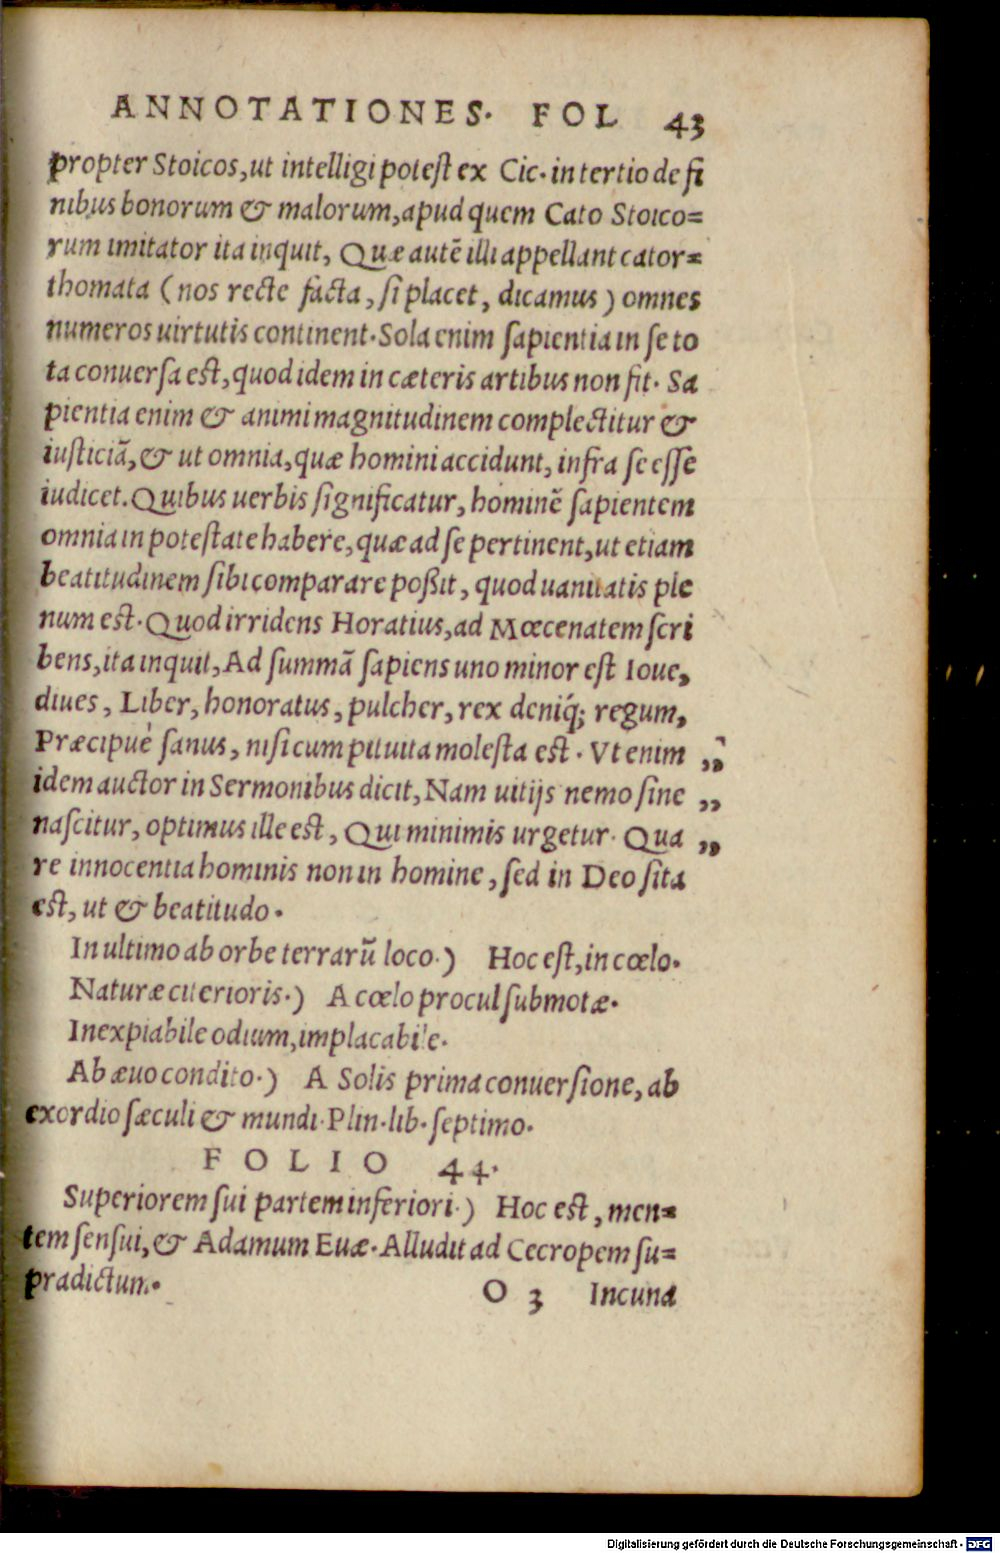 ANNOTATIONES. FOL 43
propter Stoicos, ut intelligi potest ex Cic. in tertio de fi
nibus bonorum & malorum, apud quem Cato Stoico=
rum imitator ita inquit, Quæ autē illi appellant cator=
thomata (nos recte facta, si placet, dicamus) omnes
numeros uirtutis continent. Sola enim sapientia in se to
ta conuersa est, quod idem in cæteris artibus non fit. Sa
pientia enim & animi magnitudinem complectitur &
iusticiā, & ut omnia, quæ homini accidunt, infra se esse
iudicet. Quibus uerbis significatur, hominē sapientem
omnia in potestate habere, quæ ad se pertinent, ut etiam
beatitudinem sibi comparare poßit, quod uanitatis ple
num est. Quod irridens Horatius, ad Mœcenatem scri
bens, ita inquit, Ad summā sapiens uno minor est Ioue,
diues, Liber, honoratus, pulcher, rex deniq́; regum,
Præcipuè sanus, nisi cum pituita molesta est. Vt enim ,,
idem auctor in Sermonibus dicit, Nam uitijs nemo sine ,,
nascitur, optimus ille est, Qui minimis urgetur. Qua ,,
re innocentia hominis non in homine, sed in Deo sita
est, ut & beatitudo.
In ultimo ab orbe terrarū loco.) Hoc est, in cœlo.
Naturæ citerioris.) A cœlo procul submotæ.
Inexpiabile odium, implacabile.
Ab æuo condito.) A Solis prima conuersione, ab
exordio sæculi & mundi. Plin. lib. septimo.
FOLIO 44.
Superiorem sui partem inferiori.) Hoc est, men=
tem sensui, & Adamum Euæ. Alludit ad Cecropem su=
pradictum.
O 3 Incuna
Digitalisierung gefördert durch die Deutsche Forschungsgemeinschaft - DFG